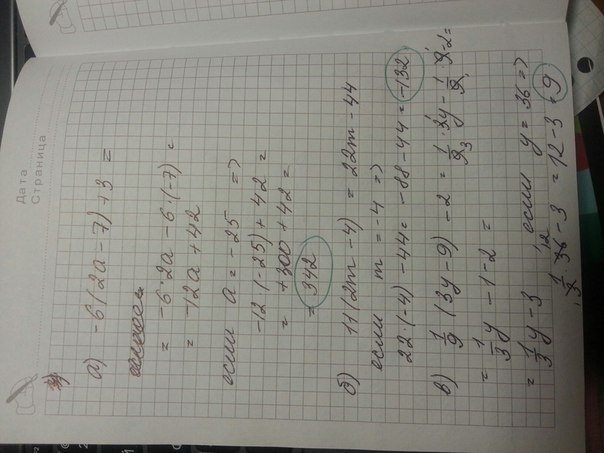 Дата
Страница
а) -6(2a - 7) + 3 =
= -6·2a - 6·(-7) =
= -12a + 42
если a = -25 =>
-12·(-25) + 42 =
= +300 + 42 =
= 342
б) 11(2m - 4) = 22m - 44
если m = -4 =>
22·(-4) - 44 = -88 - 44 = -132
в) 1/9 (3y - 9) - 2 = 1/9 · 3y - 1/9 · 9 - 2 =
= 1/3 y - 1 - 2 =
= 1/3 y - 3, если y = 36 =>
1/3 · 36 - 3 = 12 - 3 = 9